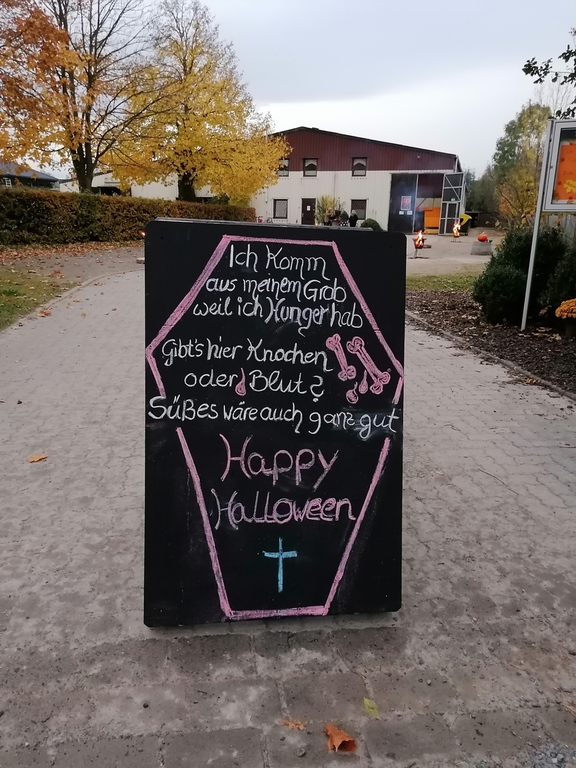 Ich Komm
aus meinem Grab
weil ich Hunger hab
Gibt's hier Knochen
oder Blut?
Süßes wäre auch ganz gut
Happy
Halloween